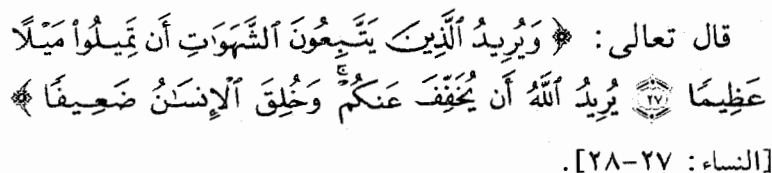 قال تعالى: ﴿ وَيُرِيدُ ٱلَّذِينَ يَتَّبِعُونَ ٱلشَّهَوَٰتِ أَن تَمِيلُوا۟ مَيْلًا
عَظِيمًا ﴿٢٧﴾ يُرِيدُ ٱللَّهُ أَن يُخَفِّفَ عَنكُمْ ۚ وَخُلِقَ ٱلْإِنسَٰنُ ضَعِيفًا ﴾
[النساء: ٢٧-٢٨].